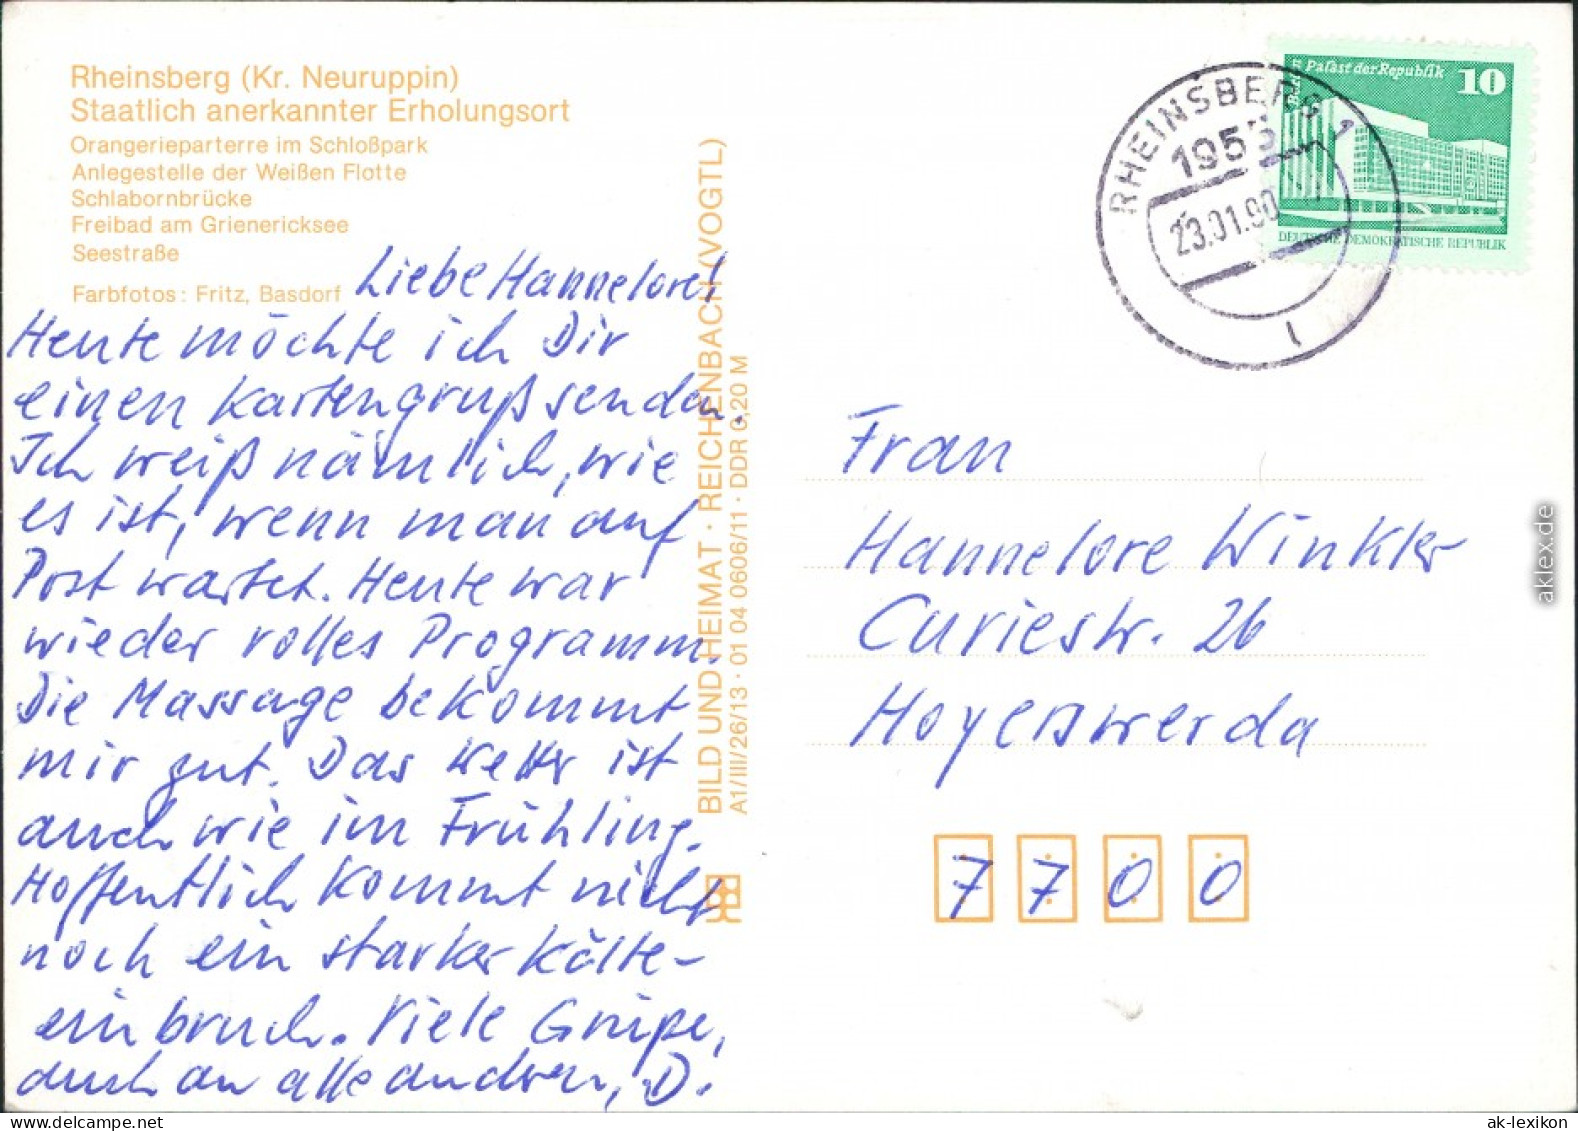 Rheinsberg (Kr. Neuruppin)
Staatlich anerkannter Erholungsort
Orangerieparterre im Schloßpark
Anlegestelle der Weißen Flotte
Schlabornbrücke
Freibad am Grienericksee
Seestraße
Farbfotos: Fritz, Basdorf
Liebe Hannelore!
Heute möchte ich Dir
einen Kartengruß senden.
Ich weiß nämlich, wie
es ist, wenn man auf
Post wartet. Heute war
wieder volles Programm.
Die Massage bekommt
mir gut. Das Wetter ist
auch wie im Frühling.
Hoffentlich kommt nicht
noch ein starker Kälte-
einbruch. Viele Grüße,
auch an alle anderen, D.
BILD UND HEIMAT · REICHENBACH (VOGTL)
A1/III/26/13 · 01 04 0606/11 · DDR 0,20 M
RHEINSBERG 1
1955
23.01.90
l
Berlin
Palast der Republik
10
DEUTSCHE DEMOKRATISCHE REPUBLIK
Frau
Hannelore Winkler
Curiestr. 26
Hoyerswerda
7700
aklex.de
ak-lexikon